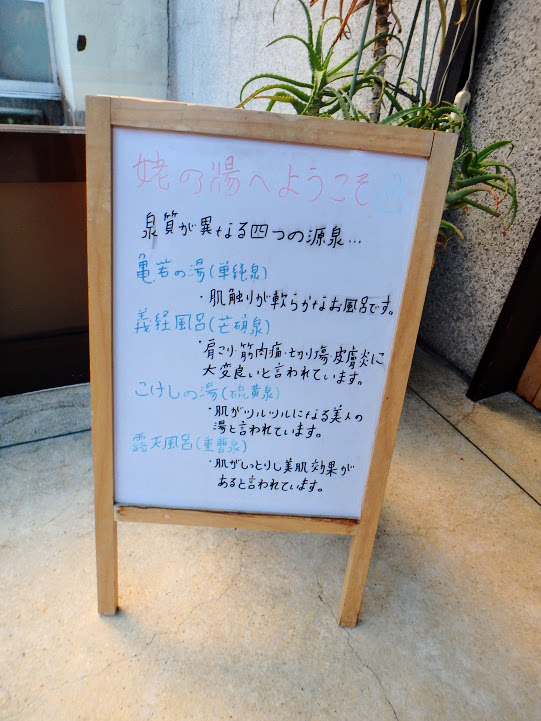 姥の湯へようこそ
泉質が異なる四つの源泉…
亀若の湯(単純泉)
・肌触りが軟らかなお風呂です。
義経風呂(芒硝泉)
・肩こり・筋肉痛・切り傷・皮膚炎に
大変良いと言われています。
こけしの湯(硫黄泉)
・肌がツルツルになる美人の
湯と言われています。
露天風呂(重曹泉)
・肌がしっとりし美肌効果が
あると言われています。